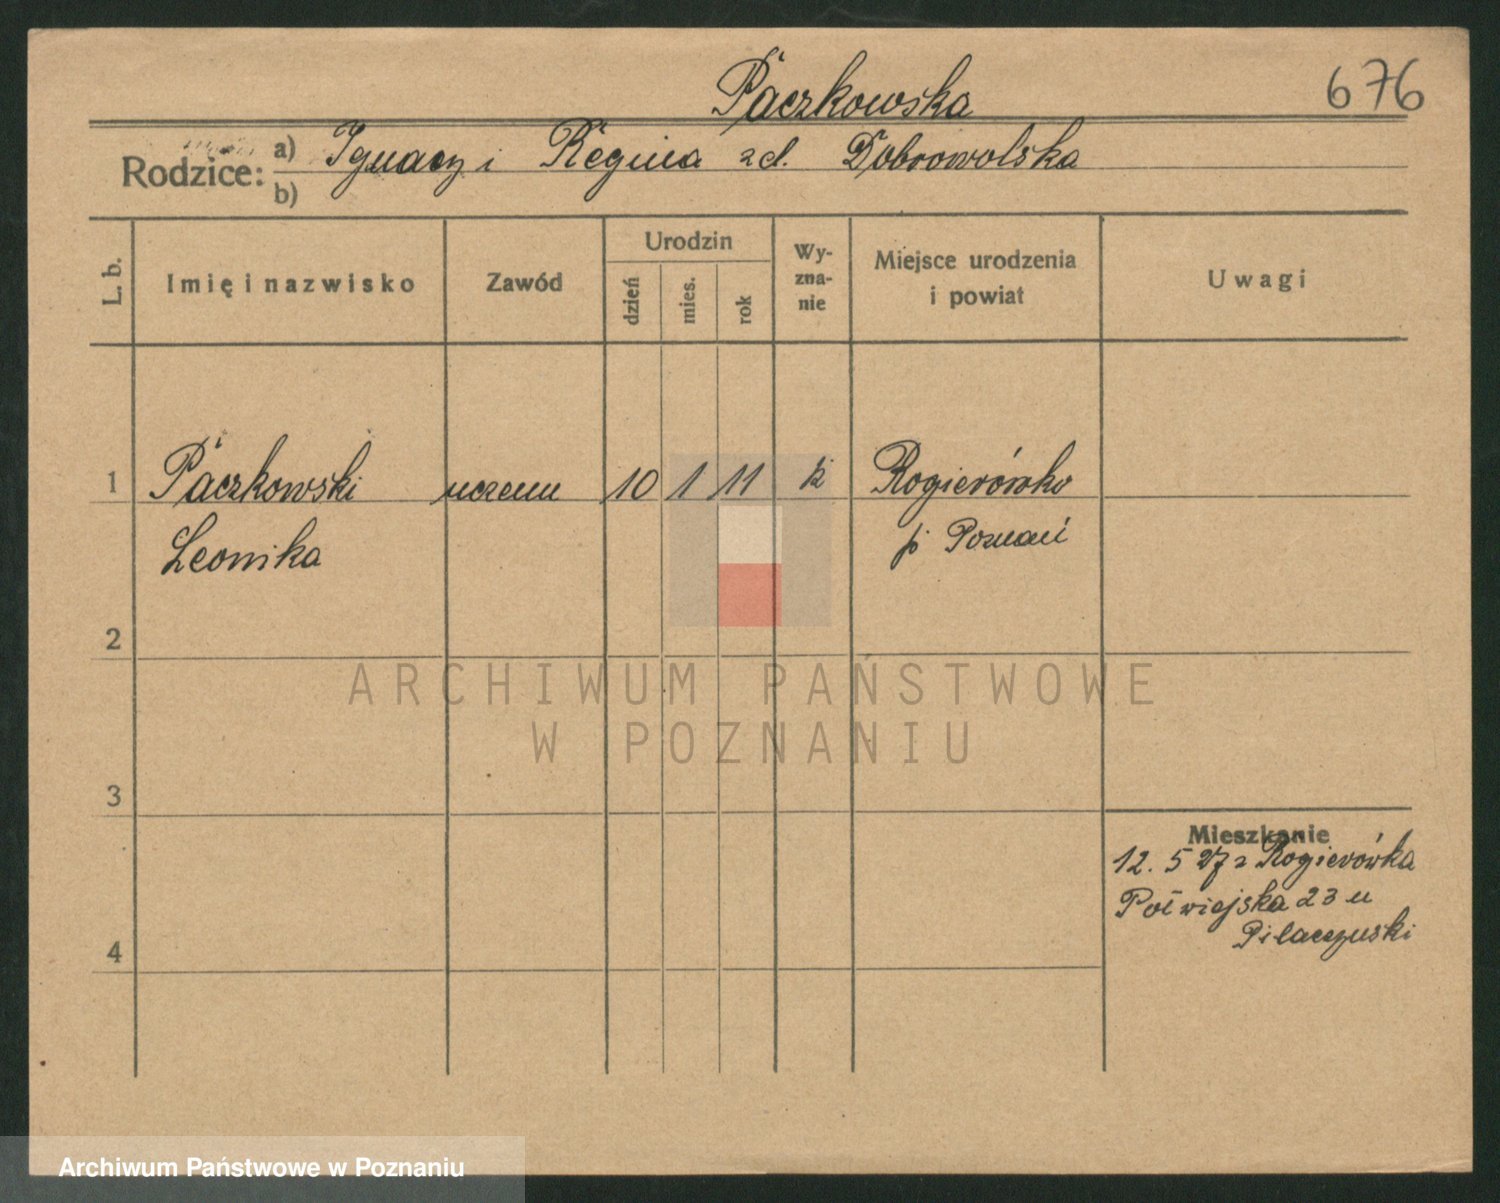 Paczkowska
676
Rodzice: a) Ignacy i Regina zd. Dobrowolska
b)
L. b. Imię i nazwisko Zawód Urodzin dzień mies. rok Wy-zna-nie Miejsce urodzenia i powiat Uwagi
1 Paczkowski uczenn 10 1 11 k Rogierówko
Leonika p Poznań
2
3
Mieszkanie
12. 5 27 z Rogierówka
Polwiejska 23 u
4
ARCHIWUM PAŃSTWOWE
W POZNANIU
Archiwum Państwowe w Poznaniu